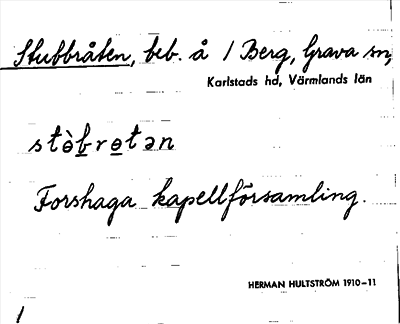 Stubbråten, beb. å 1 Berg, Grava sn,
Karlstads hd, Värmlands län
stὲb̲rɵ̲tən
Forshaga kapellförsamling.
HERMAN HULTSTRÖM 1910–11